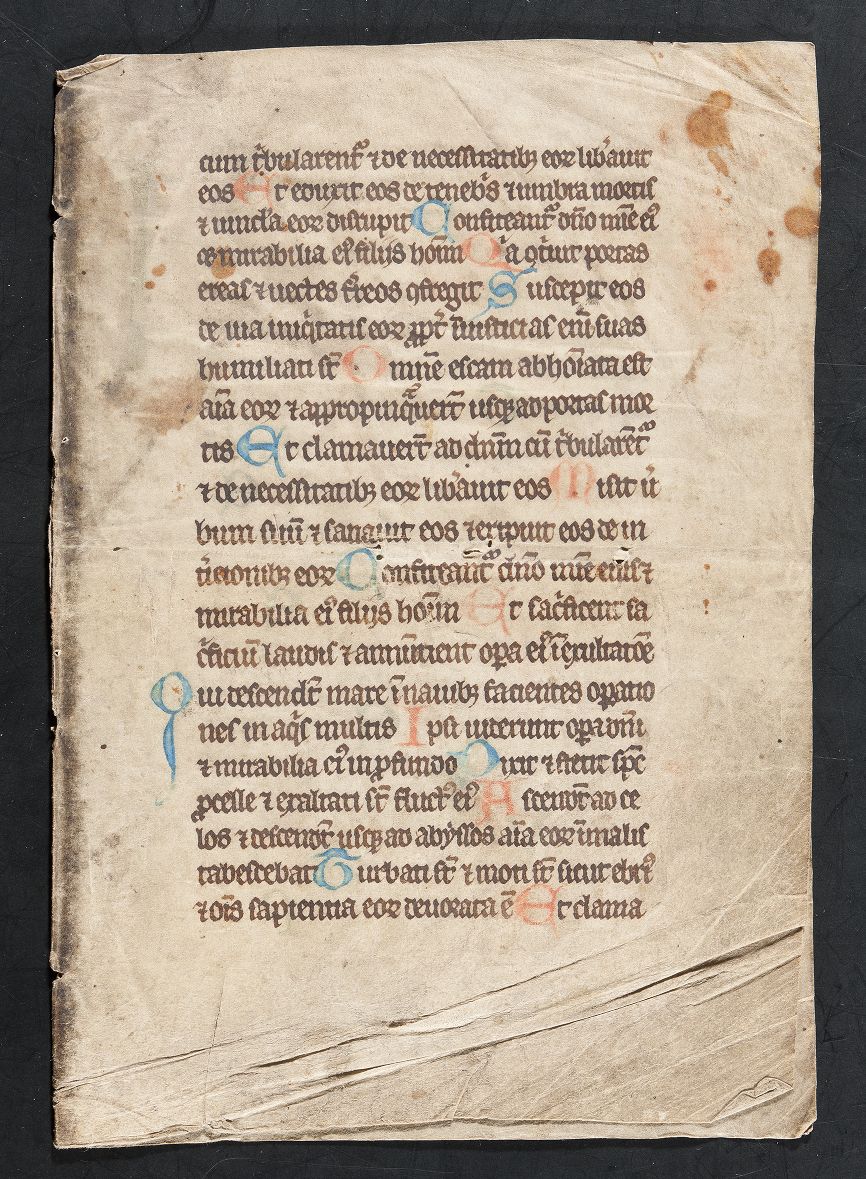 cum t̾bularent᷑ ⁊ de necessitatib; eoꝝ lib̾auit
eos Et eduxit eos de teneb̾s ⁊ umbra mortis
⁊ uincl̾a eoꝝ disrupit Confiteant᷑ dño mïe eꝰ
et mirabilia eꝰ filijs hoïm Qͥa ꝯt̾uit portas
ereas ⁊ uectes f̾reos ꝯfregit Suscepit eos
de uia iniqͥtatis eoꝝ ꝓpt̾ iniusticias enī suas
humiliati st̄ Omnē escam abhoīata est
aīa eoꝝ ⁊ appropinqᷓuerūt usqꝫ ad portas mor
tis Et clamauert̄ ad dnm̄ cū t̾bularent᷑
⁊ de necessitatibꝫ eoꝝ lib̾auit eos Misit ū̾
bum suū ⁊ sanauit eos ⁊ eripuit eos de in
t̾icionibꝫ eoꝝ Confiteant᷑ dn̄o mīe eius ⁊
mirabilia eꝰ filijs hoīm Et sac̾ficent sa
c̾ficiū laudis ⁊ annūtient oꝑa eꝰ ī exultatōe
Qui descendt̄ mare ī nauibꝫ facientes oꝑatio
nes in aqͥs multis Ipsi uiderunt oꝑa dn̄i
⁊ mirabilia eꝰ in ꝓfundo Dixit ⁊ stetit spc̄
ꝓcelle ⁊ exaltati st̄ fluctꝰ eꝰ Ascendt̄ ad ce
los ⁊ descendt̄ usqꝫ ad abyssos aīa eoꝝ ī malis
tabescebat Turbati st̄ ⁊ moti st̄ sicut ebrꝰ
⁊ oīs sapientia eoꝝ deuorata ē Et clama